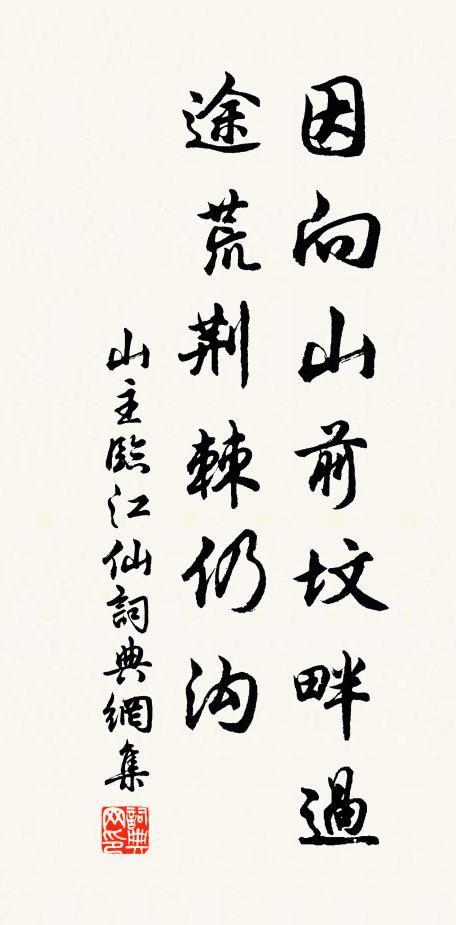 因向山前坟畔過
途荒荆棘仍沟
山主臨江仙詞典網集
詞典
网印